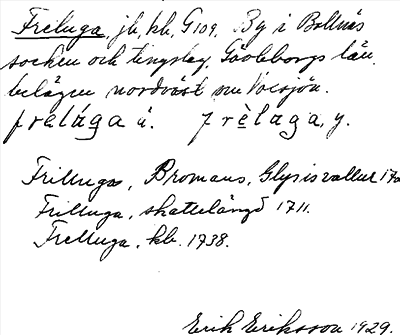 Freluga, jb, kb, G109. By i Bollnäs
socken och tingslag, Gävleborgs län,
belägen nordväst om Varsjön.
frelága ä. frèlaga, y.
Frilluga, Bromans, Glysisvallur 172
Frilluga, skattelängd 1711.
Frelluga, kb. 1738.
Erik Eriksson 1929.